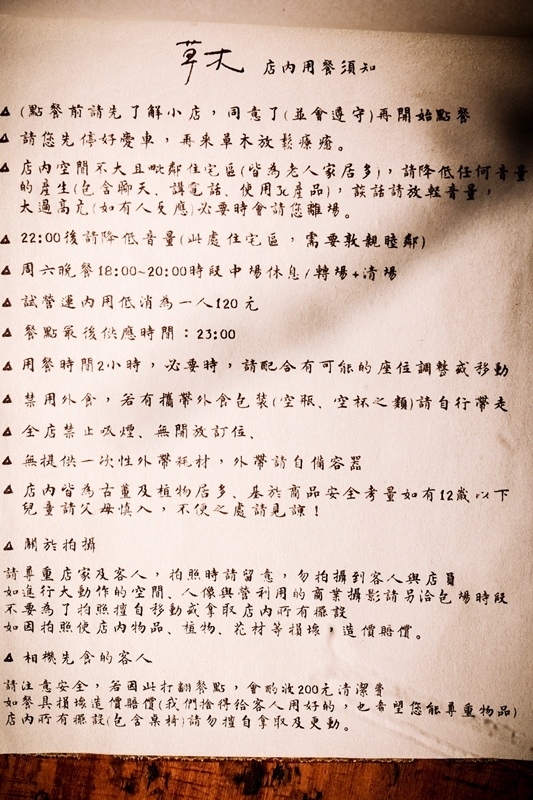 草木 店內用餐須知
▲ (點餐前請先了解小店，同意了(並會遵守)再開始點餐
▲ 請您先停好愛車，再來草木放鬆療癒。
▲ 店內空間不大且毗鄰住宅區(皆為老人家居多)，請降低任何音量
的產生(包含聊天、講電話、使用3c產品)，談話請放輕音量，
太過高亢(如有人反應)必要時會請您離場。
▲ 22:00後請降低音量(此處住宅區，需要敦親睦鄰)
▲ 周六晚餐18:00~20:00時段中場休息/轉場+清場
▲ 試營運內用低消為一人120元
▲ 餐點最後供應時間：23:00
▲ 用餐時間2小時，必要時，請配合有可能的座位調整或移動
▲ 禁用外食，若有攜帶外食包裝(空瓶、空杯之類)請自行帶走
▲ 全店禁止吸煙、無開放訂位、
▲ 無提供一次性外帶耗材，外帶請自備容器
▲ 店內皆為古董及植物居多、基於商品安全考量如有12歲以下
兒童請父母慎入，不便之處請見諒！
▲ 關於拍攝
請尊重店家及客人，拍照時請留意，勿拍攝到客人與店員
如進行大動作的空間、人像與營利用的商業攝影請另洽包場時段
不要為了拍照擅自移動或拿取店內所有擺設
如因拍照使店內物品、植物、花材等損壞，造價賠償。
▲ 相機先食的客人
請注意安全，若因此打翻餐點，會酌收200元清潔費
如餐具損壞造價賠償(我們捨得給客人用好的，也希望您能尊重物品)
店內所有擺設(包含桌椅)請勿擅自拿取及更動。